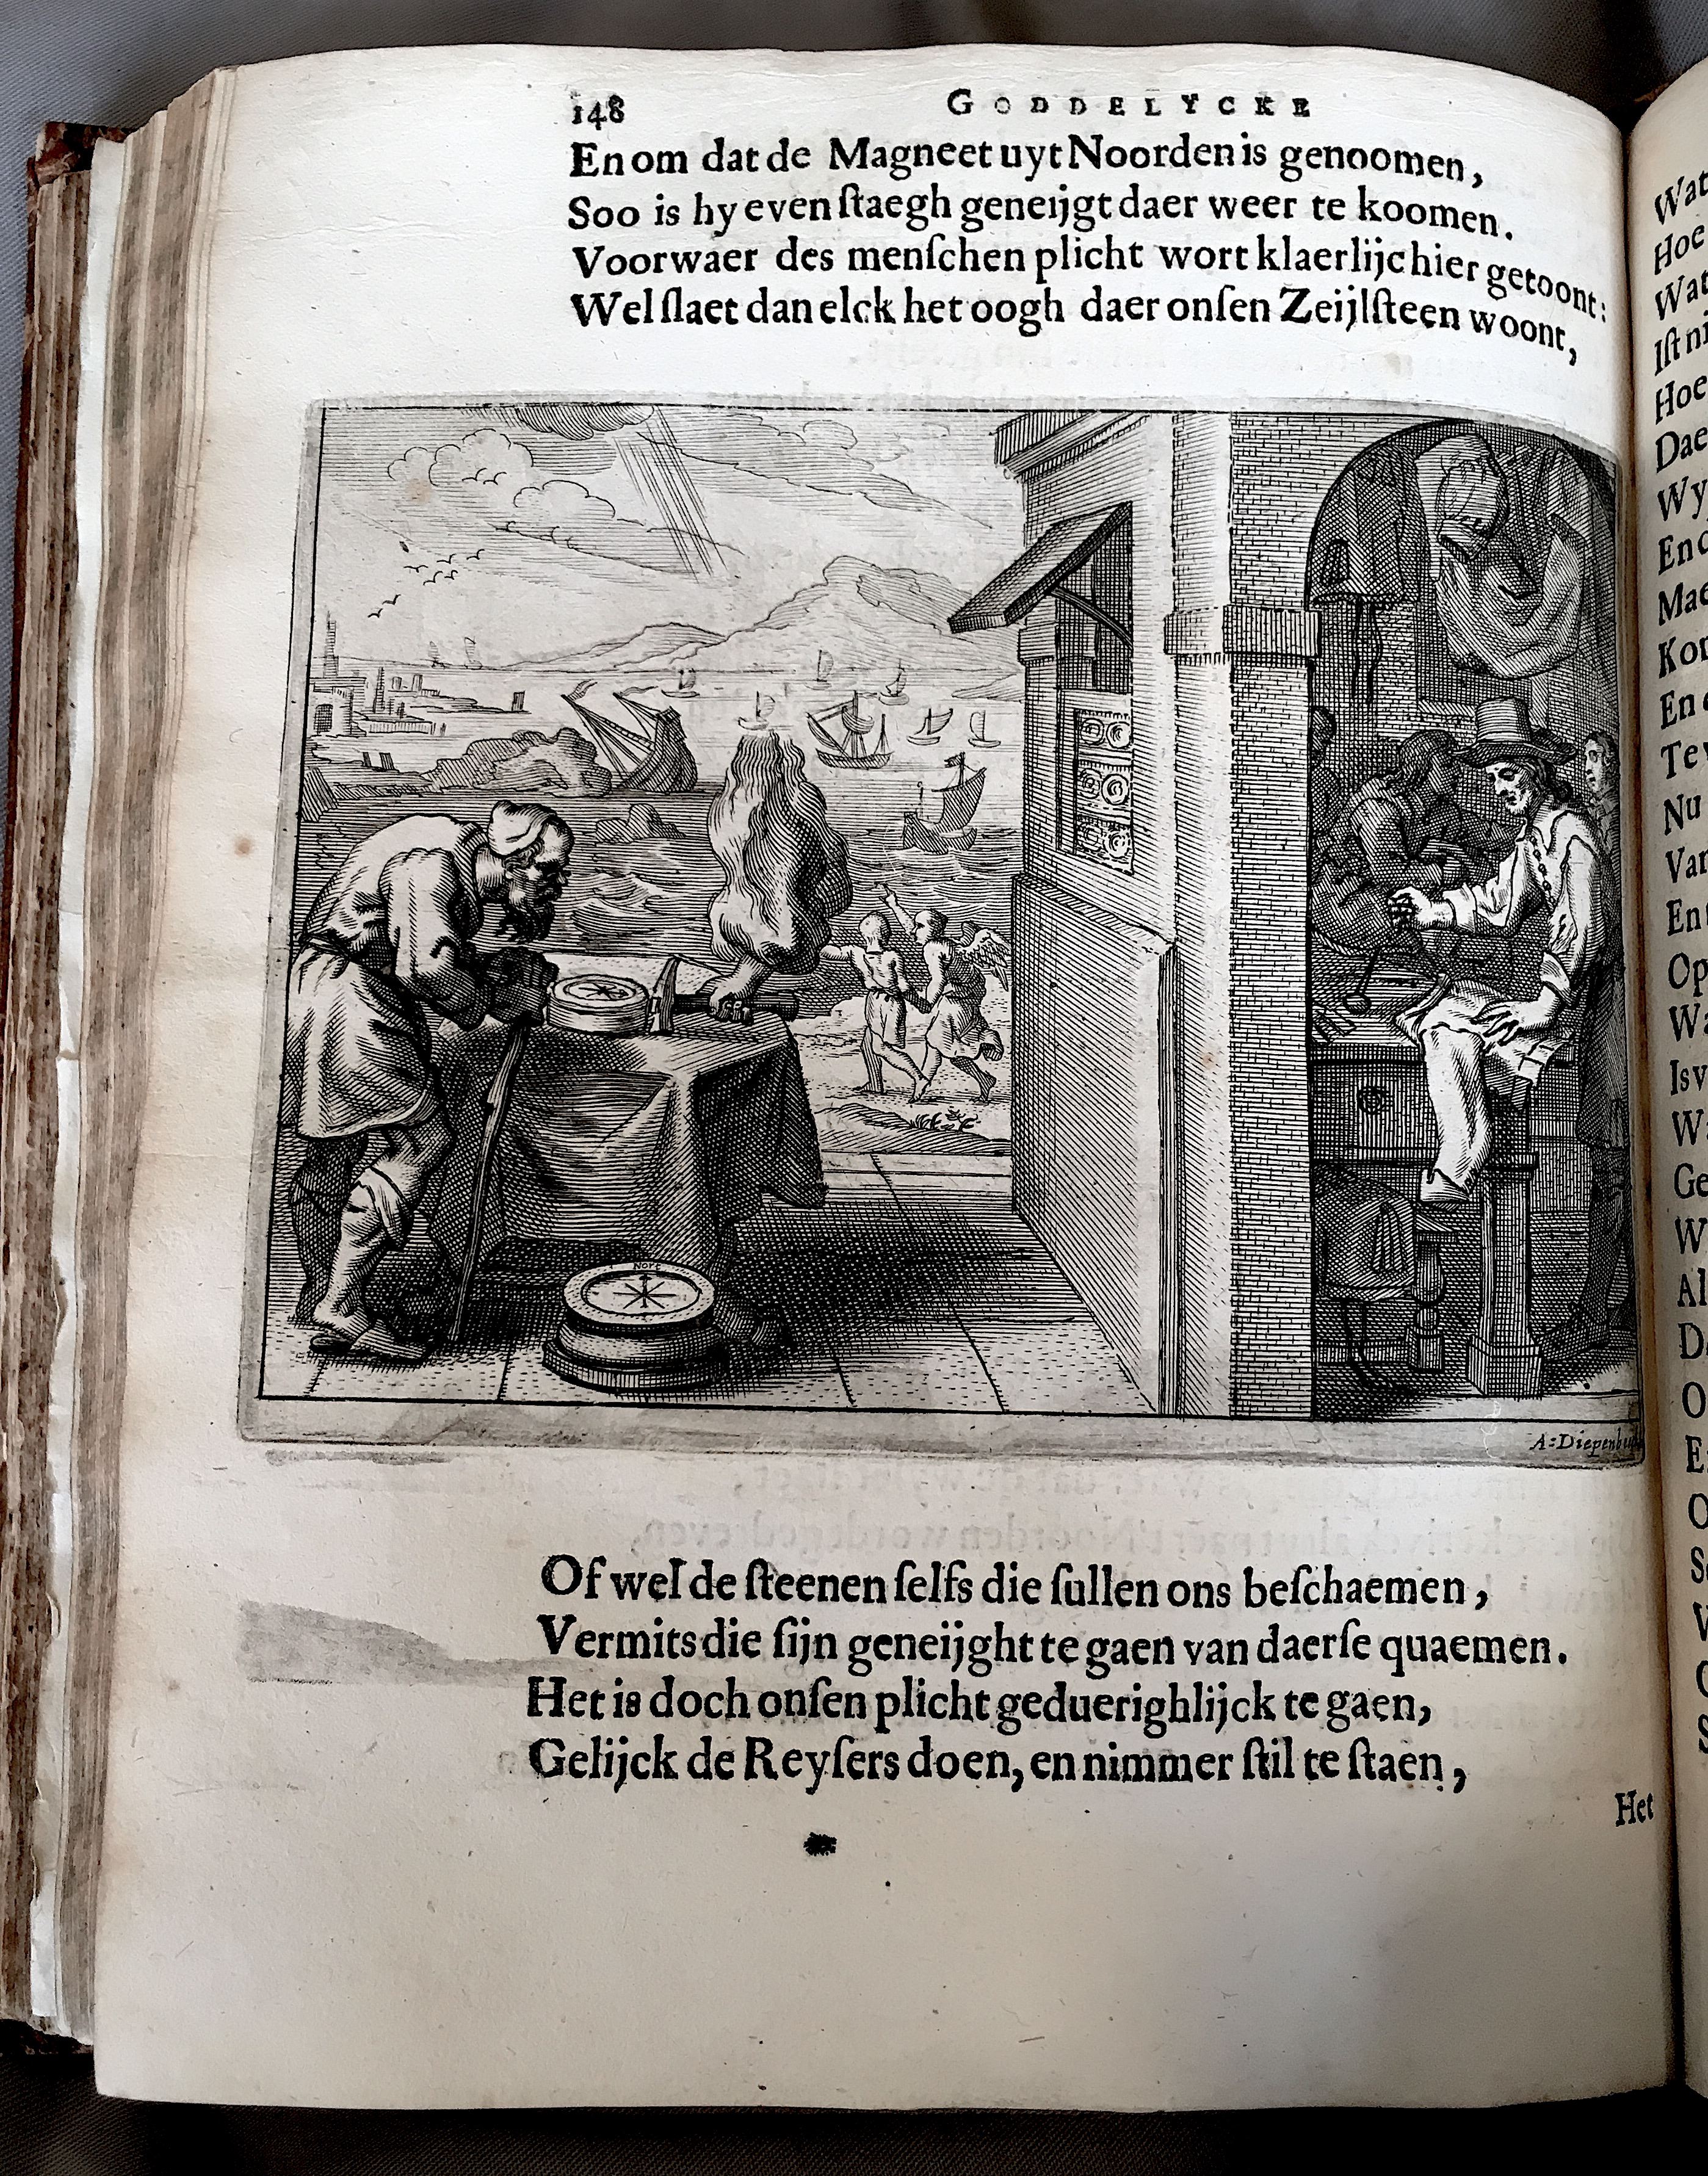 148 GODDELYCKE
En om dat de Magneet uyt Noorden is genoomen,
Soo is hy even ſtaegh geneijgt daer weer te koomen.
Voorwaer des menſchen plicht wort klaerlijc hier getoont:
Wel ſlaet dan elck het oogh daer onſen Zeijlſteen woont,
Nort
A: Diepenhuysen
Of wel de ſteenen ſelfs die ſullen ons beſchaemen,
Vermits die ſijn geneijght te gaen van daer ſe quaemen.
Het is doch onſen plicht geduerighlijck te gaen,
Gelijck de Reyſers doen, en nimmer ſtil te ſtaen,
Het
Wat
Hoe
Wat
Iſt ni
Hoe
Dae
Wy
En
Mae
Kor
En
Te
Nu
Van
En
Op
Wa
Is
W
Ge
W
Al
D
O
E
O
S